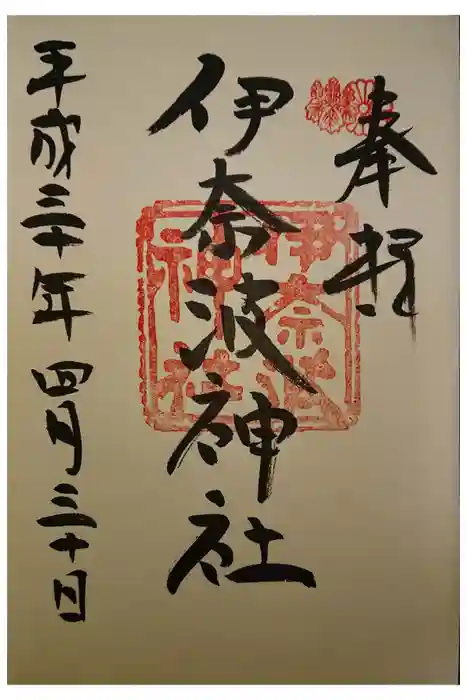 奉拝
伊奈波神社
伊奈波
神社
平成三十年四月三十日